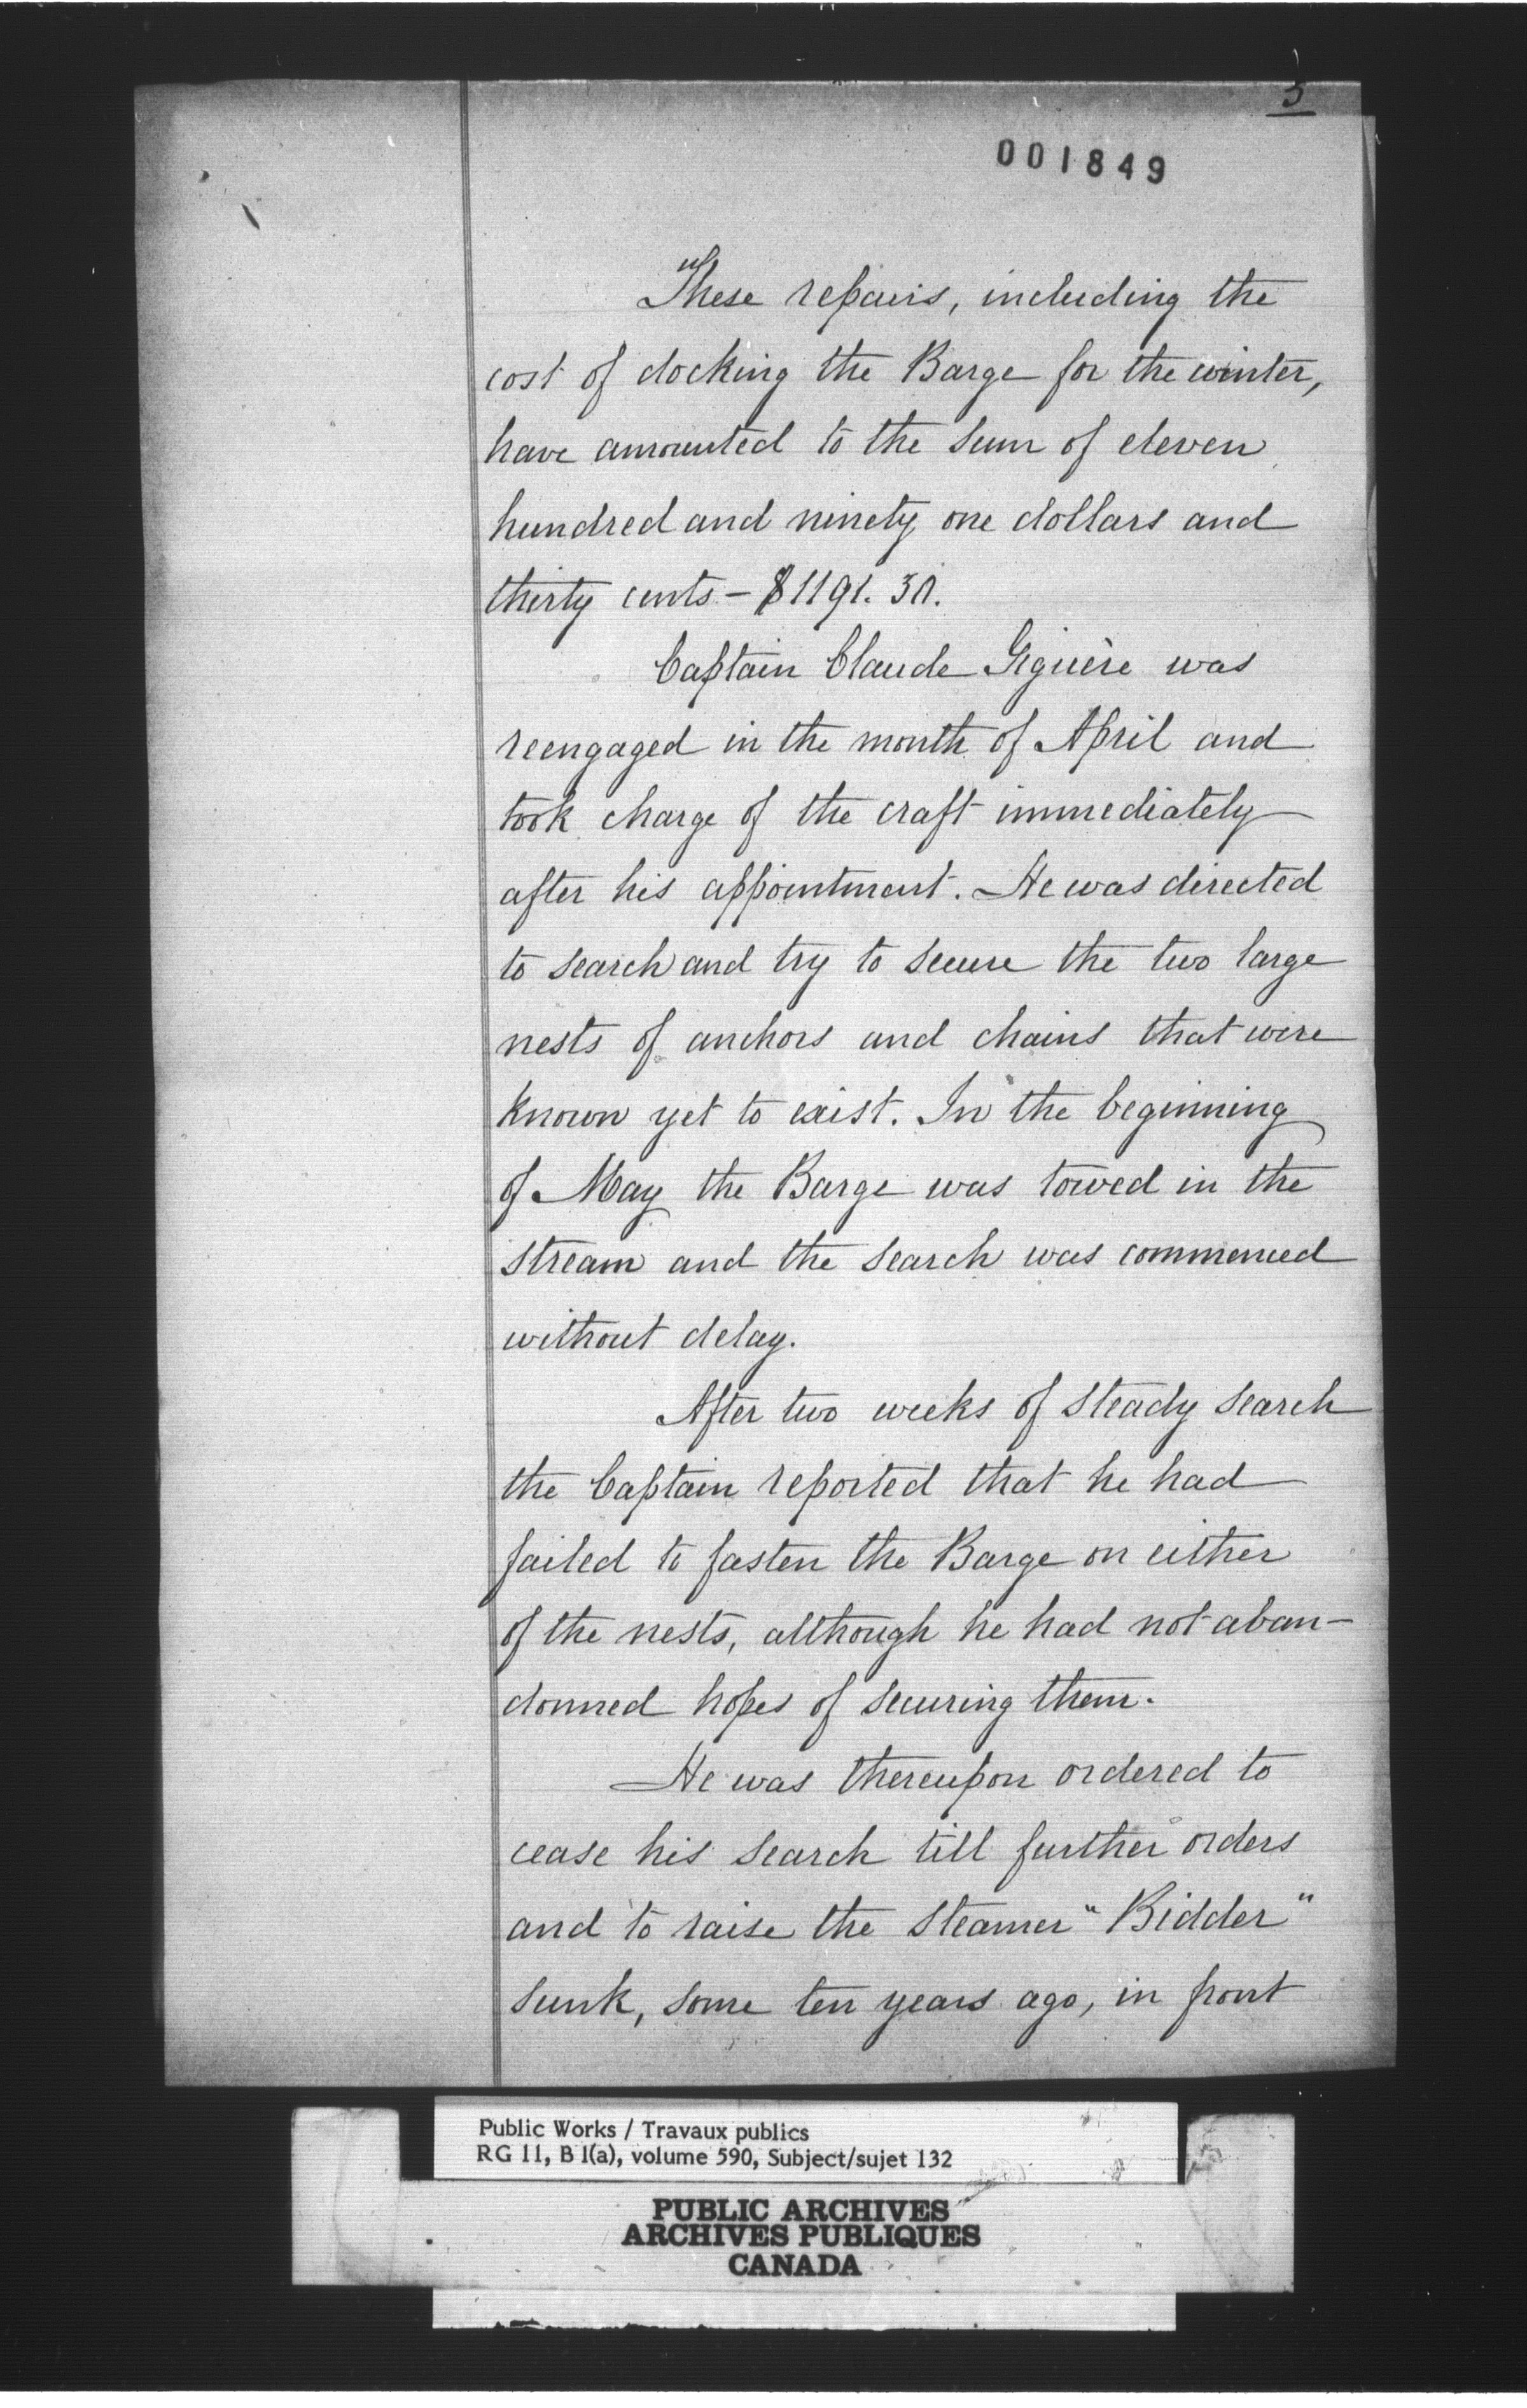 3
001849
These repairs, including the
cost of docking the Barge for the winter,
have amounted to the sum of eleven
hundred and ninety one dollars and
thirty cents — $1191.30.
Captain Claude Giguère was
reengaged in the month of April and
took charge of the craft immediately
after his appointment. He was directed
to search and try to secure the two large
nests of anchors and chains that were
known yet to exist. In the beginning
of May the Barge was towed in the
stream and the search was commenced
without delay.
After two weeks of steady search
the Captain reported that he had
failed to fasten the Barge on either
of the nests, although he had not aban-
donned hopes of securing them.
He was thereupon ordered to
cease his search till further orders
and to raise the steamer "Bidder"
sunk, some ten years ago, in front
Public Works / Travaux publics
RG 11, B 1(a), volume 590, Subject/sujet 132
PUBLIC ARCHIVES
ARCHIVES PUBLIQUES
CANADA